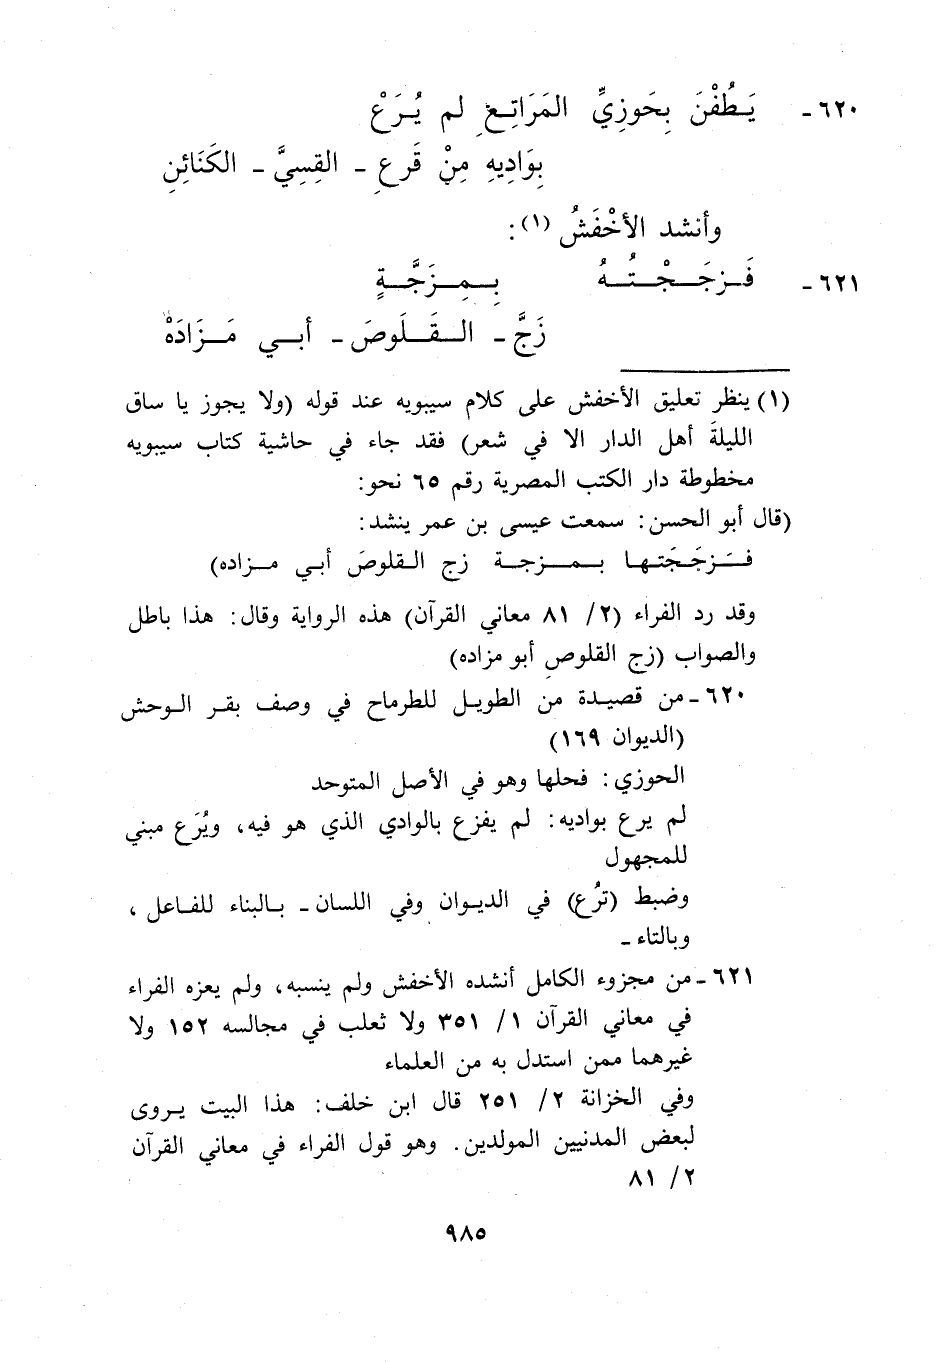 ٦٢٠- يَطُفْنَ بِحَوزِيِّ المَرَاتِعِ لم يُرَعْ
بِوَادِيهِ مِنْ قَرعِ - القِسِيَّ - الكَنَائِنِ
وأنشد الأخْفَشُ (١):
٦٢١- فَزجَجْتُهُ بِمِزَجَّةٍ
زَجَّ - القَلَوصَ - أبي مَزَادَهْ
(١) ينظر تعليق الأخفش على كلام سيبويه عند قوله (ولا يجوز يا ساق
الليلةَ أهل الدار الا في شعر) فقد جاء في حاشية كتاب سيبويه
مخطوطة دار الكتب المصرية رقم ٦٥ نحو:
(قال أبو الحسن: سمعت عيسى بن عمر ينشد:
فَزجَجَتها بمزجة زج القلوصَ أبي مزاده)
وقد رد الفراء (٢/ ٨١ معاني القرآن) هذه الرواية وقال: هذا باطل
والصواب (زج القلوصِ أبو مزاده)
٦٢٠- من قصيدة من الطويل للطرماح في وصف بقر الوحش
(الديوان ١٦٩)
الحوزي: فحلها وهو في الأصل المتوحد
لم يرع بواديه: لم يفزع بالوادي الذي هو فيه، ويُرَع مبني
للمجهول
وضبط (ترُع) في الديوان وفي اللسان - بالبناء للفاعل،
وبالتاء -
٦٢١- من مجزوء الكامل أنشده الأخفش ولم ينسبه، ولم يعزه الفراء
في معاني القرآن ١/ ٣٥١ ولا ثعلب في مجالسه ١٥٢ ولا
غيرهما ممن استدل به من العلماء
وفي الخزانة ٢/ ٢٥١ قال ابن خلف: هذا البيت يروى
لبعض المدنيين المولدين. وهو قول الفراء في معاني القرآن
٢/ ٨١
٩٨٥